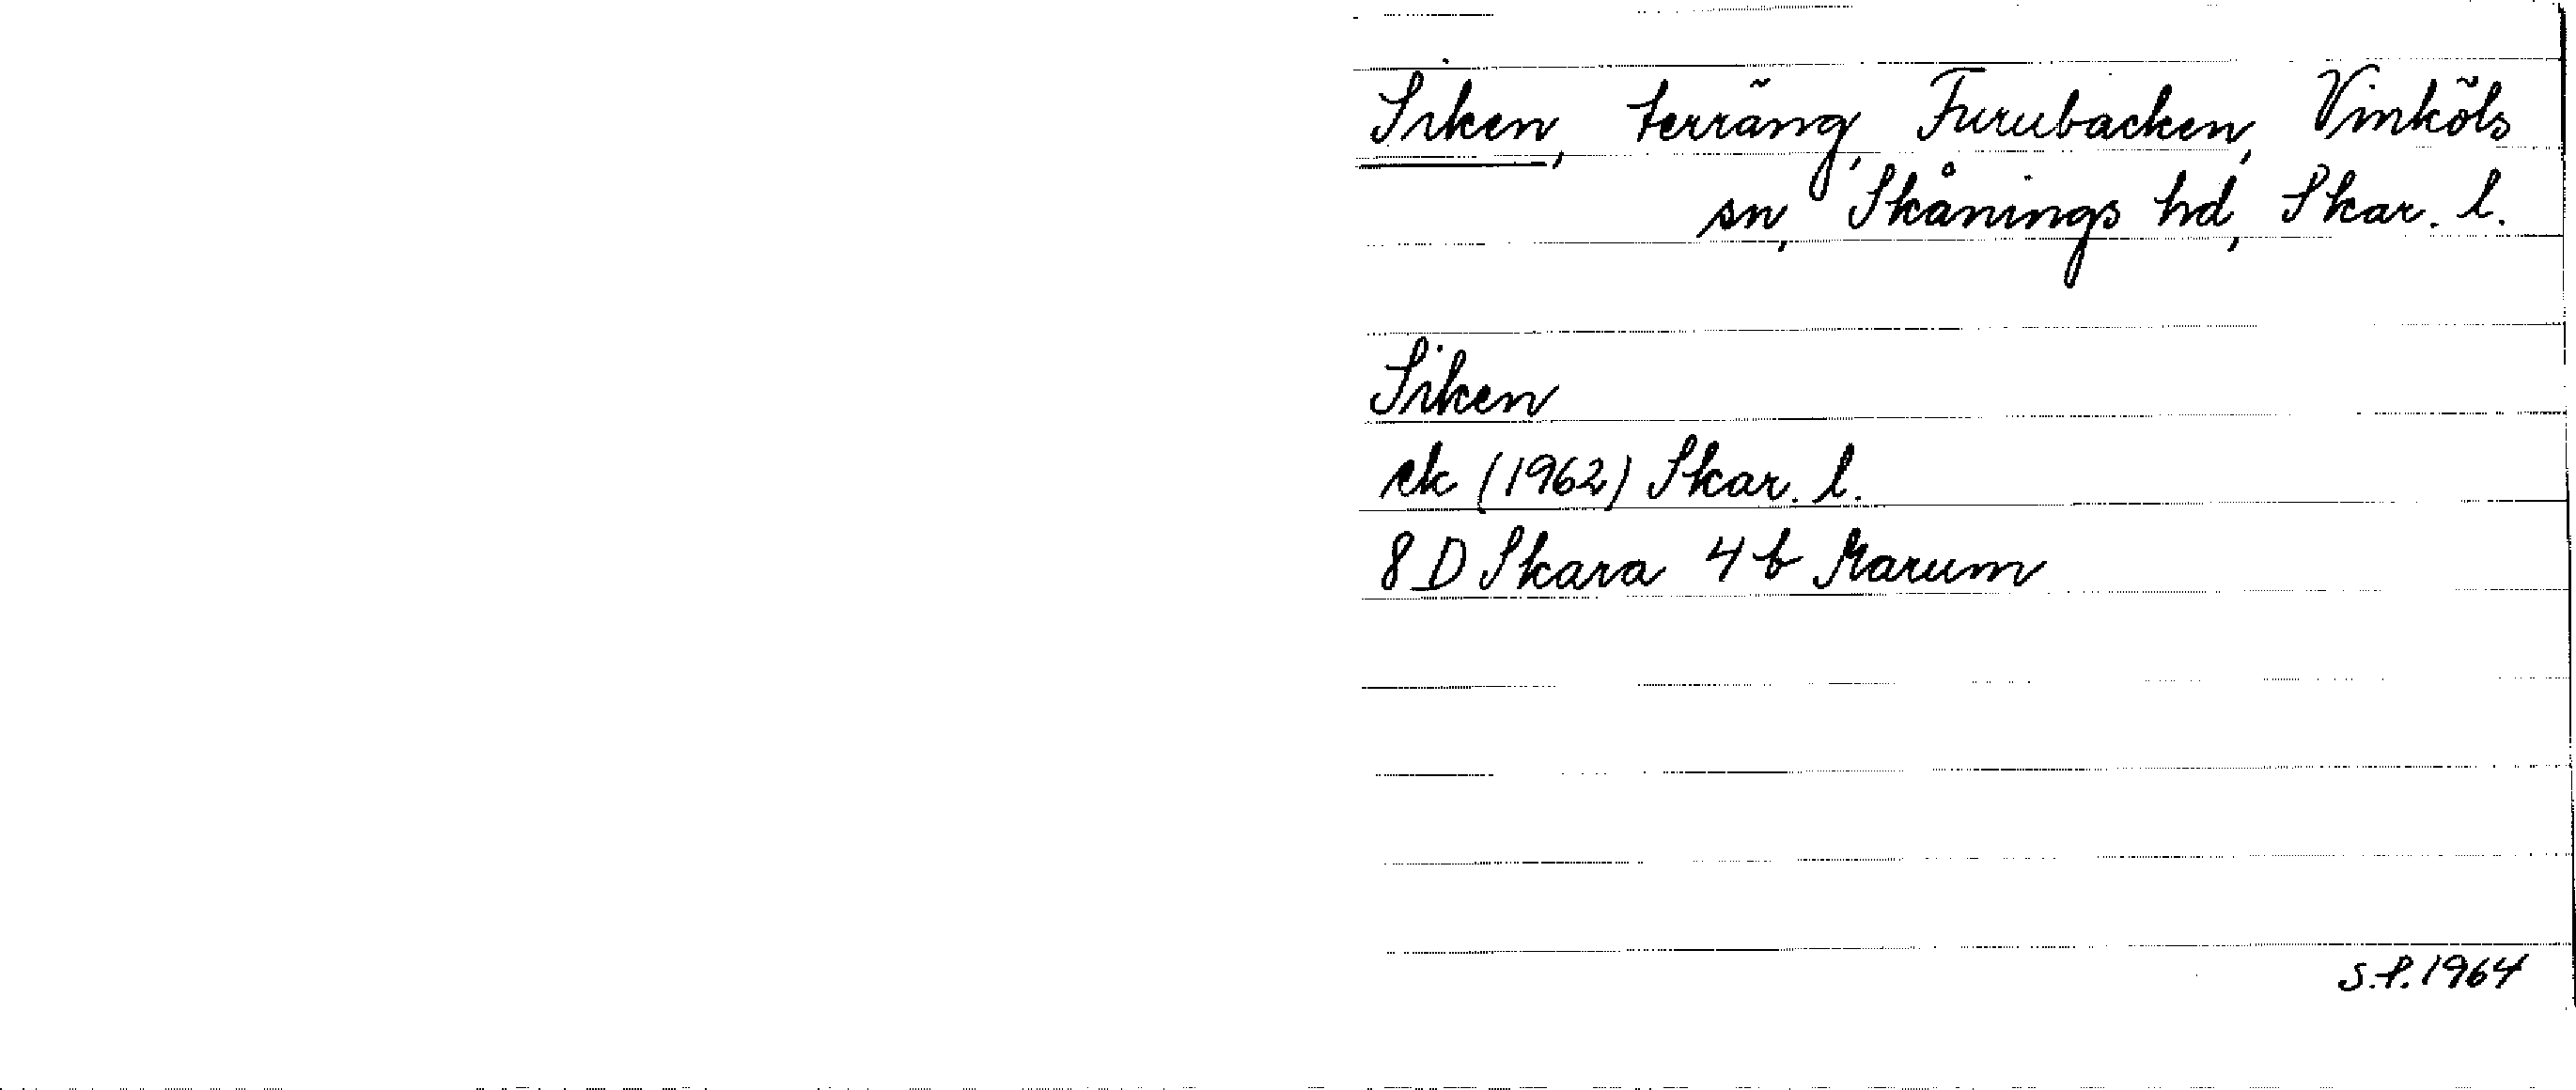 Siken, terräng, Furubacken, Vinköls
sn, Skånings hd, Skar. l.
Siken
ek (1962) Skar. l.
8 D Skara 4 b Marum
S.P. 1964